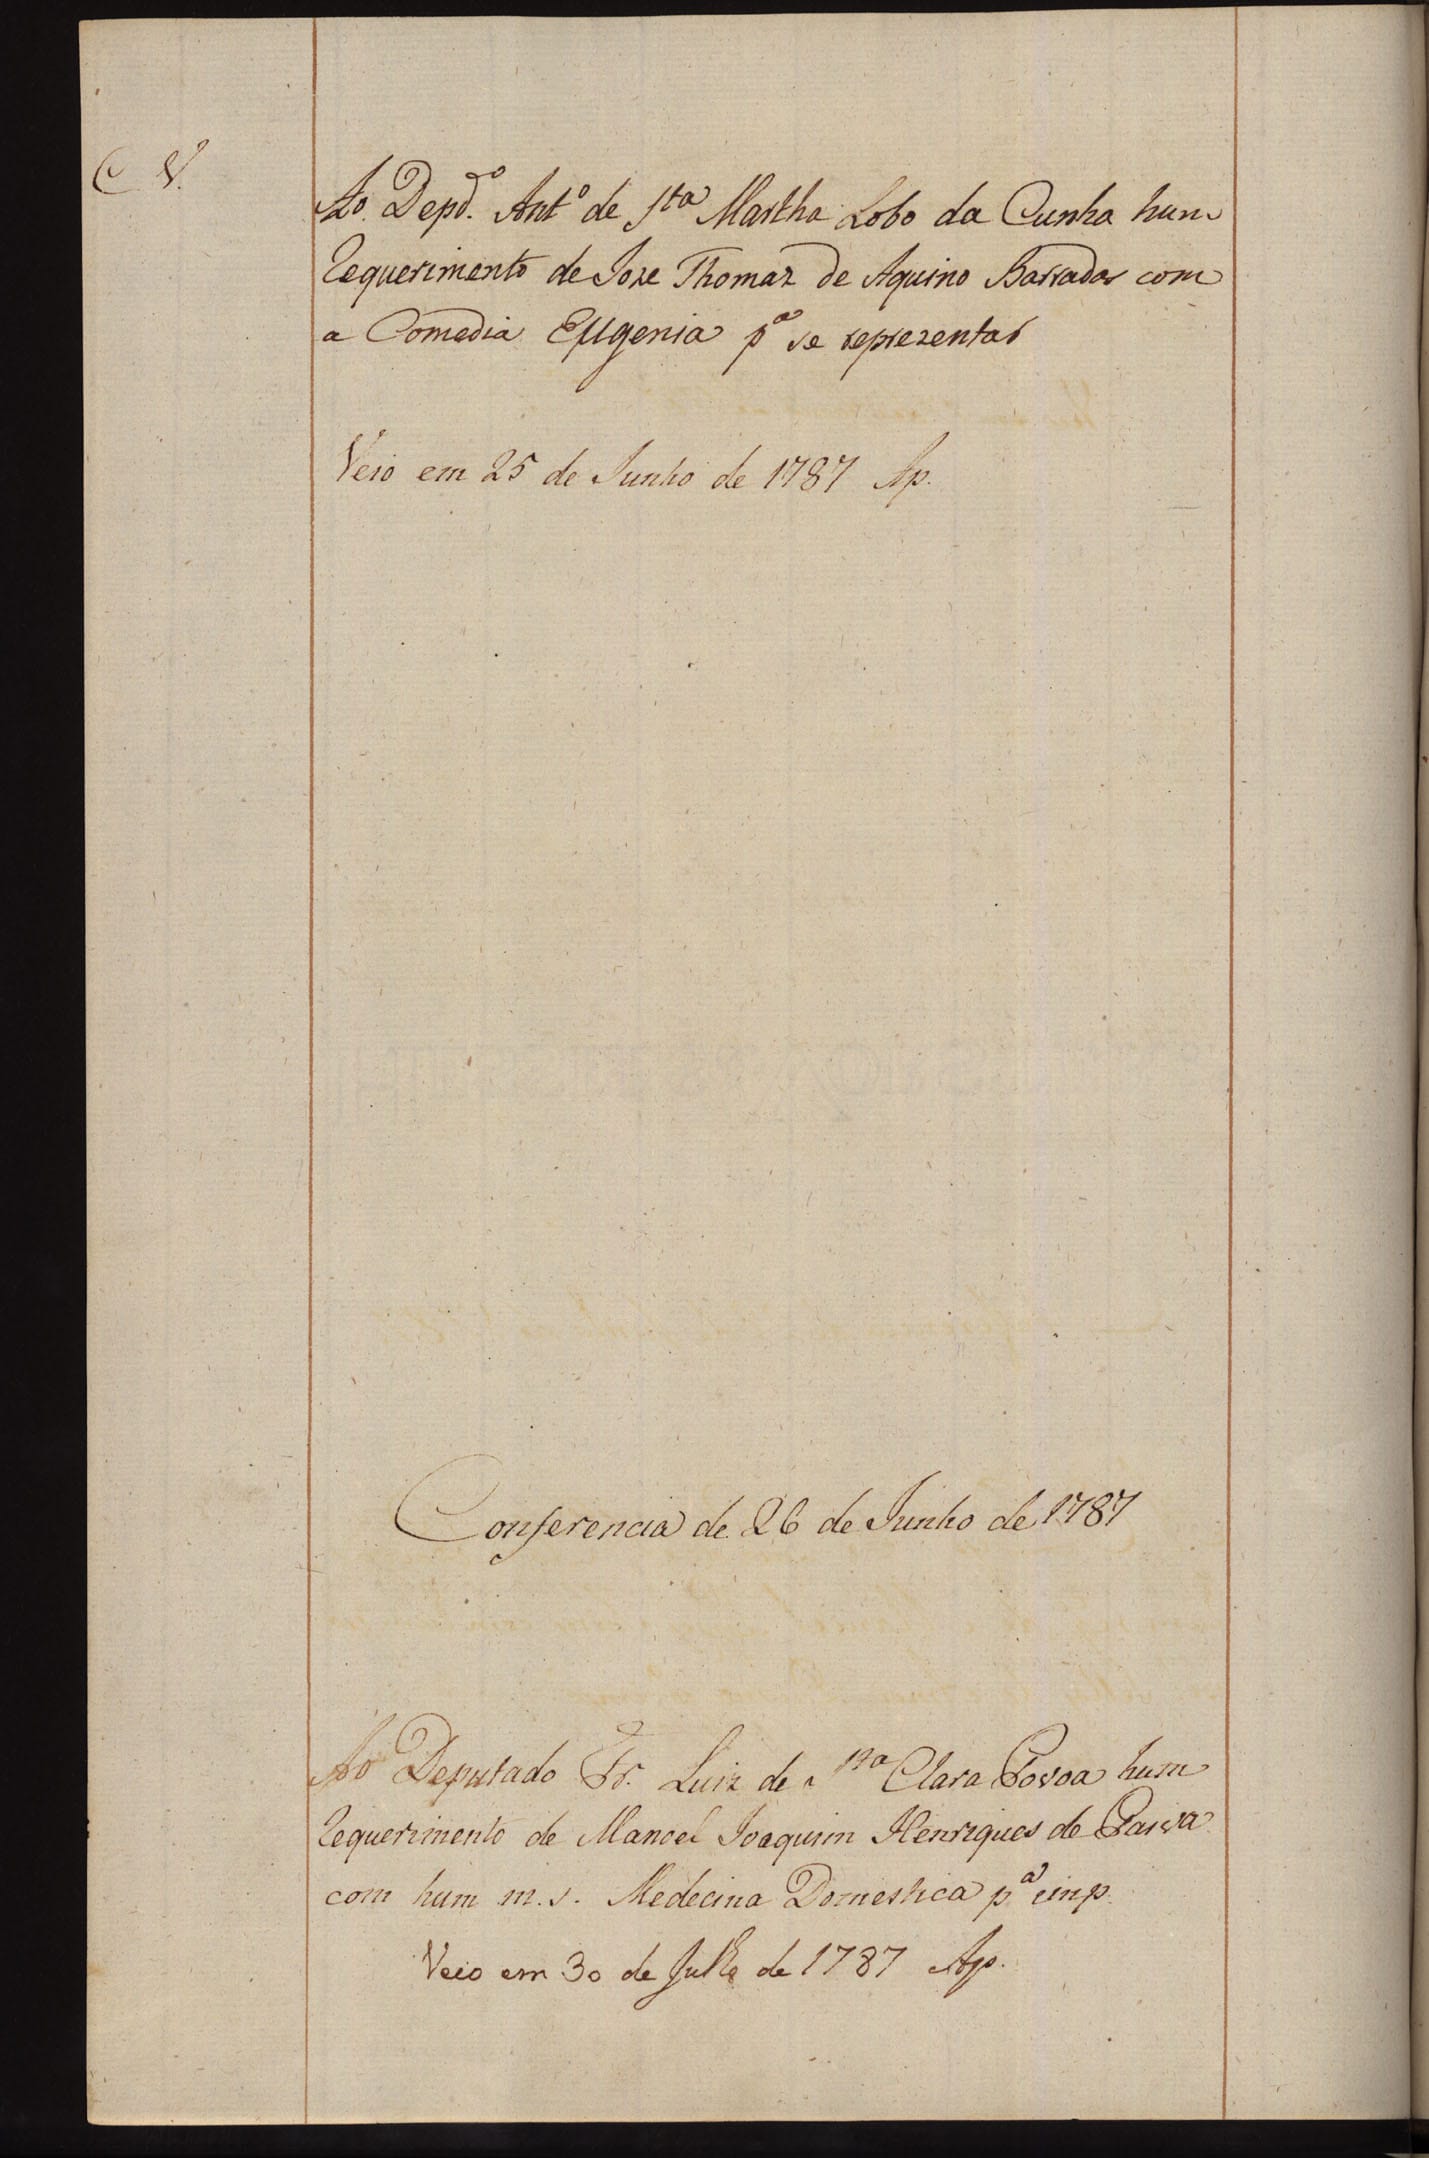 C V.
Ao Depd.º Antº de Sta Martha Lobo da Cunha hum
Requerimento de Joze Thomaz de Aquino Barradas com
a Comedia Efigenia pª se reprezentar
Veio em 25 de Junho de 1787 Ap.
Conferencia de 26 de Junho de 1787
Ao Deputado Fr. Luiz de Sta Clara Povoa hum
Requerimento de Manoel Joaquim Henriques de Paiva
com hum m.s. Medecina Domestica pª imp.
Veio em 30 de Julho de 1787 Ap.